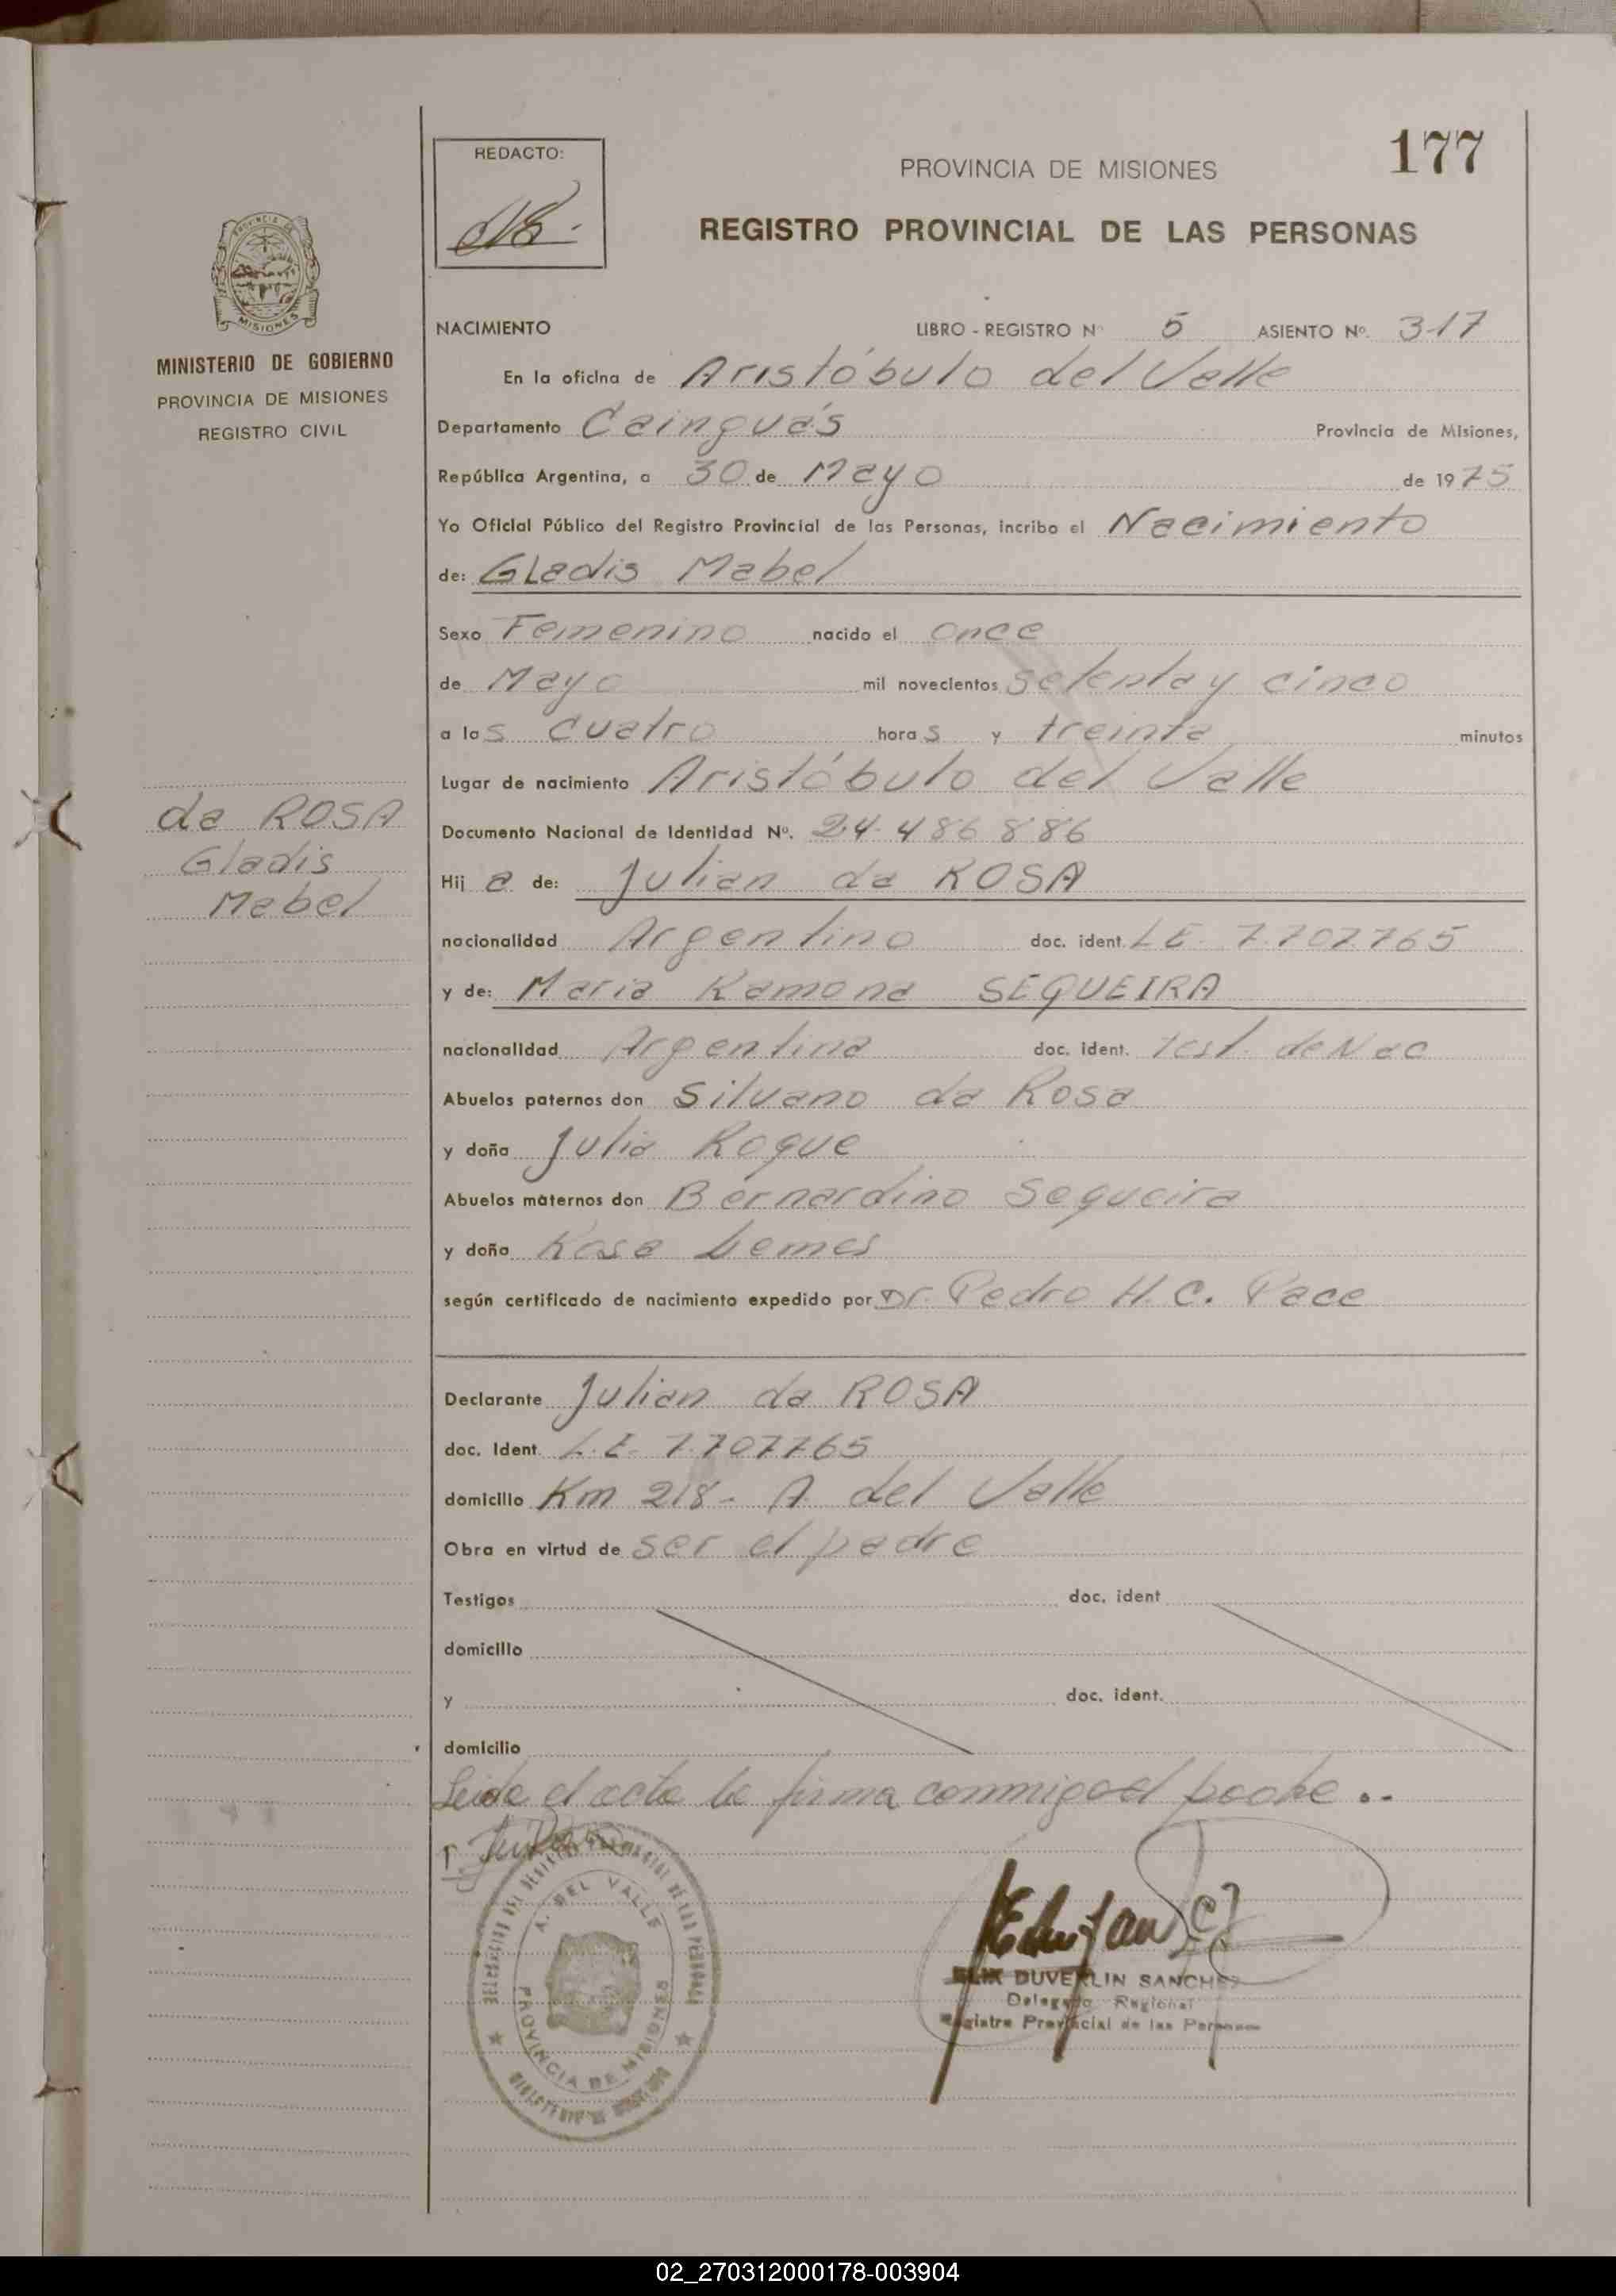 177
REDACTO:
PROVINCIA DE MISIONES
REGISTRO PROVINCIAL DE LAS PERSONAS
MISIONES
MINISTERIO DE GOBIERNO
PROVINCIA DE MISIONES
REGISTRO CIVIL
da ROSA
Gladis
Mabel
NACIMIENTO LIBRO - REGISTRO Nº 5 ASIENTO Nº. 317
En la oficina de Aristóbulo del Valle
Departamento Cainguás Provincia de Misiones,
República Argentina, a 30 de Mayo de 1975
Yo Oficial Público del Registro Provincial de las Personas, incribo el Nacimiento
de: Gladis Mabel
Sexo Femenino nacido el once
de Mayo mil novecientos setenta y cinco
a las cuatro horas y treinta minutos
Lugar de nacimiento Aristóbulo del Valle
Documento Nacional de Identidad Nº. 24.486886
Hij a de: Julian da ROSA
nacionalidad Argentino doc. ident. LE. 7.707765
y de: Maria Ramona SEQUEIRA
nacionalidad Argentina doc. ident. test. de Nac
Abuelos paternos don Silvano da Rosa
y doña Julia Roque
Abuelos maternos don Bernardino Sequeira
y doña Rosa Lemes
según certificado de nacimiento expedido por Dr. Pedro H. C. Pace
Declarante Julian da ROSA
doc. Ident. L.E. 7.707765
domicilio Km 218 - A. del Valle
Obra en virtud de ser el padre
Testigos doc. ident
domicilio
y doc. ident.
domicilio
Leida el acta la firma conmigo el padre ..
A. DEL VALLE
PROVINCIA DE MISIONES
DUVERLIN SANCHEZ
Delegado Regional
Registro Provincial de las Personas
02_270312000178-003904